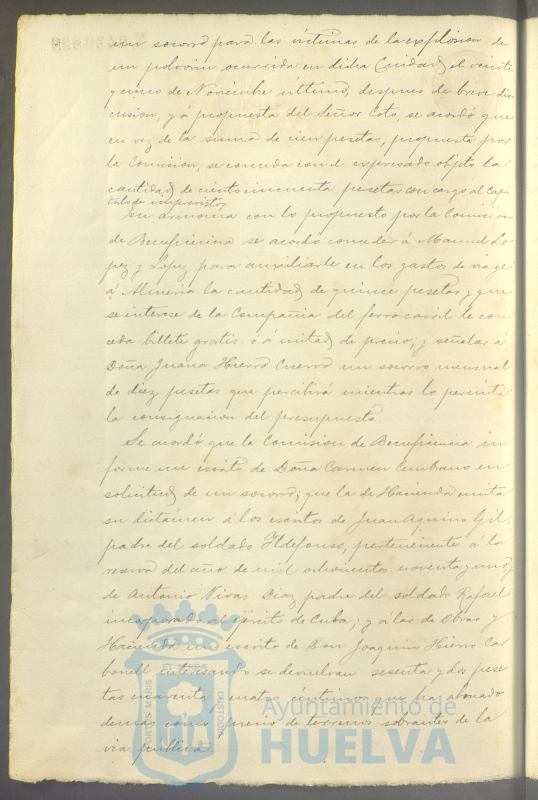 un socorro para las víctimas de la explosion de
un polvorin ocurrida en dicha Ciudad el veinte
y cinco de Noviembre último, despues de breve dis
cusion, y á propuesta del Señor Coto, se acordó que
en vez de la suma de cien pesetas, propuesta por
la Comision, se conceda con el expresado objeto la
cantidad de ciento cincuenta pesetas con cargo al capi
tulo de imprevistos
En armonia con lo propuesto por la Comision
de Beneficencia se acordó conceder á Manuel Ló
pez y Lopez para auxiliarle en los gastos de viage
á Almeria la cantidad de quince pesetas, y que
se interese de la Compañia del ferrocarril le con
ceda billete gratis ó á mitad de precio; y señalar á
Doña Juana Hierro Cuervo un socorro mensual
de diez pesetas que percibirá mientras lo permita
la consignacion del presupuesto.
Se acordó que la Comision de Beneficencia in
forme un escrito de Doña Carmen Cembrano en
solicitud de un socorro; que la de Hacienda emita
su dictámen á los escritos de Juan Aquino Gil,
padre del soldado Ildefonso, perteneciente á la
reserva del año de mil ochocientos noventa y uno, y
de Antonio Nivas Diaz padre del soldado Rafael
incorporado al ejército de Cuba; y á las de Obras y
Hacienda un escrito de Don Joaquin Hierro Car
bonell interesando se devuelvan sesenta y dos pese
tas cuarenta y cuatro céntimos que ha abonado
demás como precio de terrenos sobrantes de la
via publica
PORTUS MARIS ET TERRAE CUSTODIA
Ayuntamiento de
HUELVA